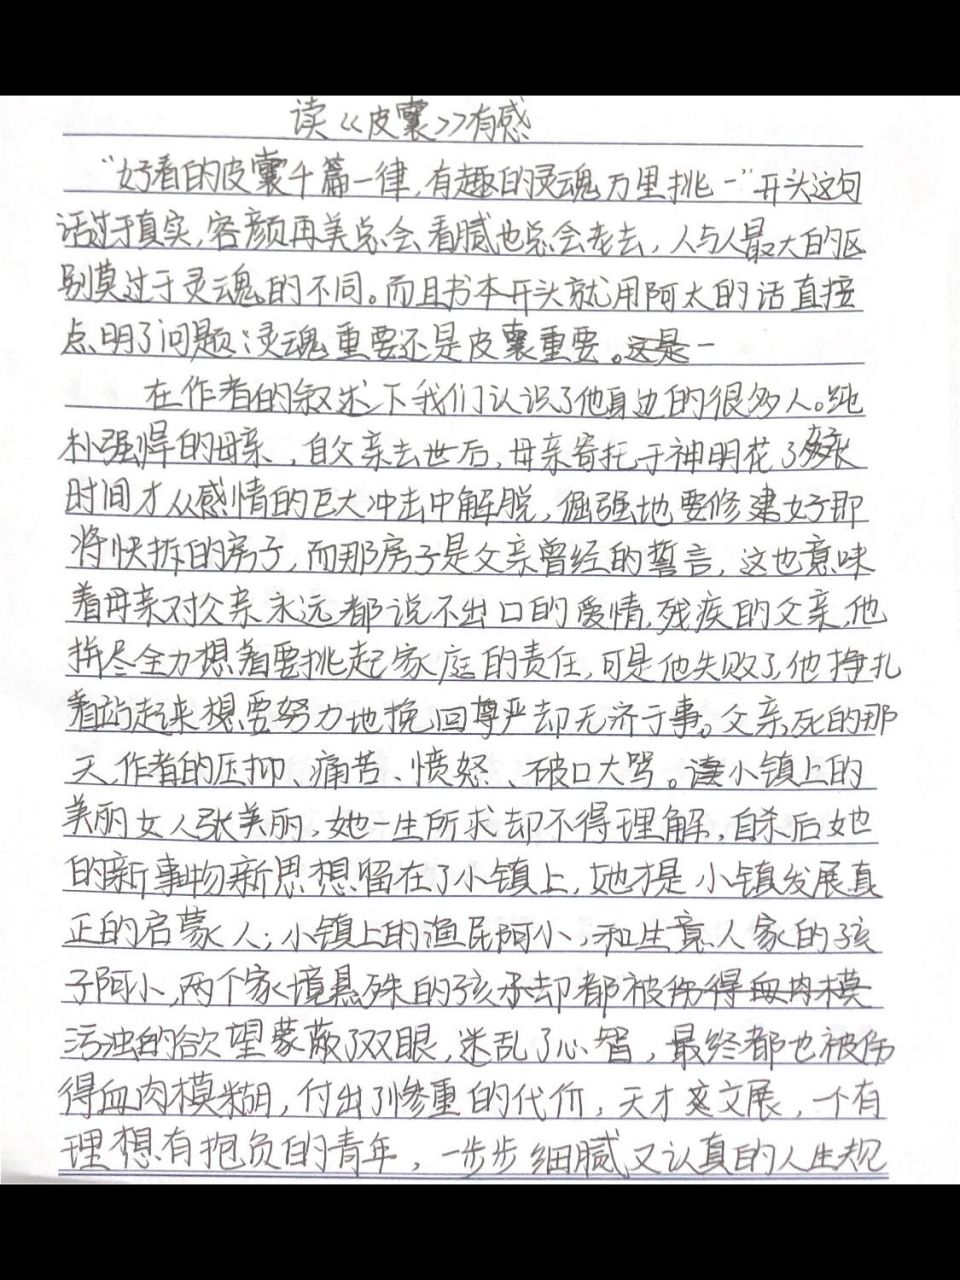 读《皮囊》有感
"好看的皮囊千篇一律，有趣的灵魂万里挑一"开头这句
话过于真实，容颜再美总会看腻也总会老去，人与人最大的区
别莫过于灵魂的不同。而且书本开头就用阿太的话直接
点明了问题：灵魂重要还是皮囊重要。这是一
在作者的叙述下我们认识了他身边的很多人。纯
朴强悍的母亲，自父亲去世后，母亲寄托于神明花了好长
时间才从感情的巨大冲击中解脱，倔强地要修建好即
将快拆的房子，而那房子是父亲曾经的誓言，这也意味
着母亲对父亲永远都说不出口的爱情，残疾的父亲，他
拼尽全力想着要挑起家庭的责任，可是他失败了，他挣扎
着站起来想要努力地挽回尊严却无济于事。父亲死的那
天，作者的压抑、痛苦、愤怒、破口大骂。小镇上的
美丽女人张美丽，她一生所求却不得理解，自杀后她
的新事物新思想留在了小镇上，她才是小镇发展真
正的启蒙人；小镇上的渔民阿小，和生意人家的孩
子阿小，两个家境悬殊的孩子却都被伤得血肉模
污浊的欲望蒙蔽了双眼，迷乱了心智，最终都也被伤
得血肉模糊，付出了惨重的代价，天才文展，一个有
理想有抱负的青年，一步步细腻又认真的人生规